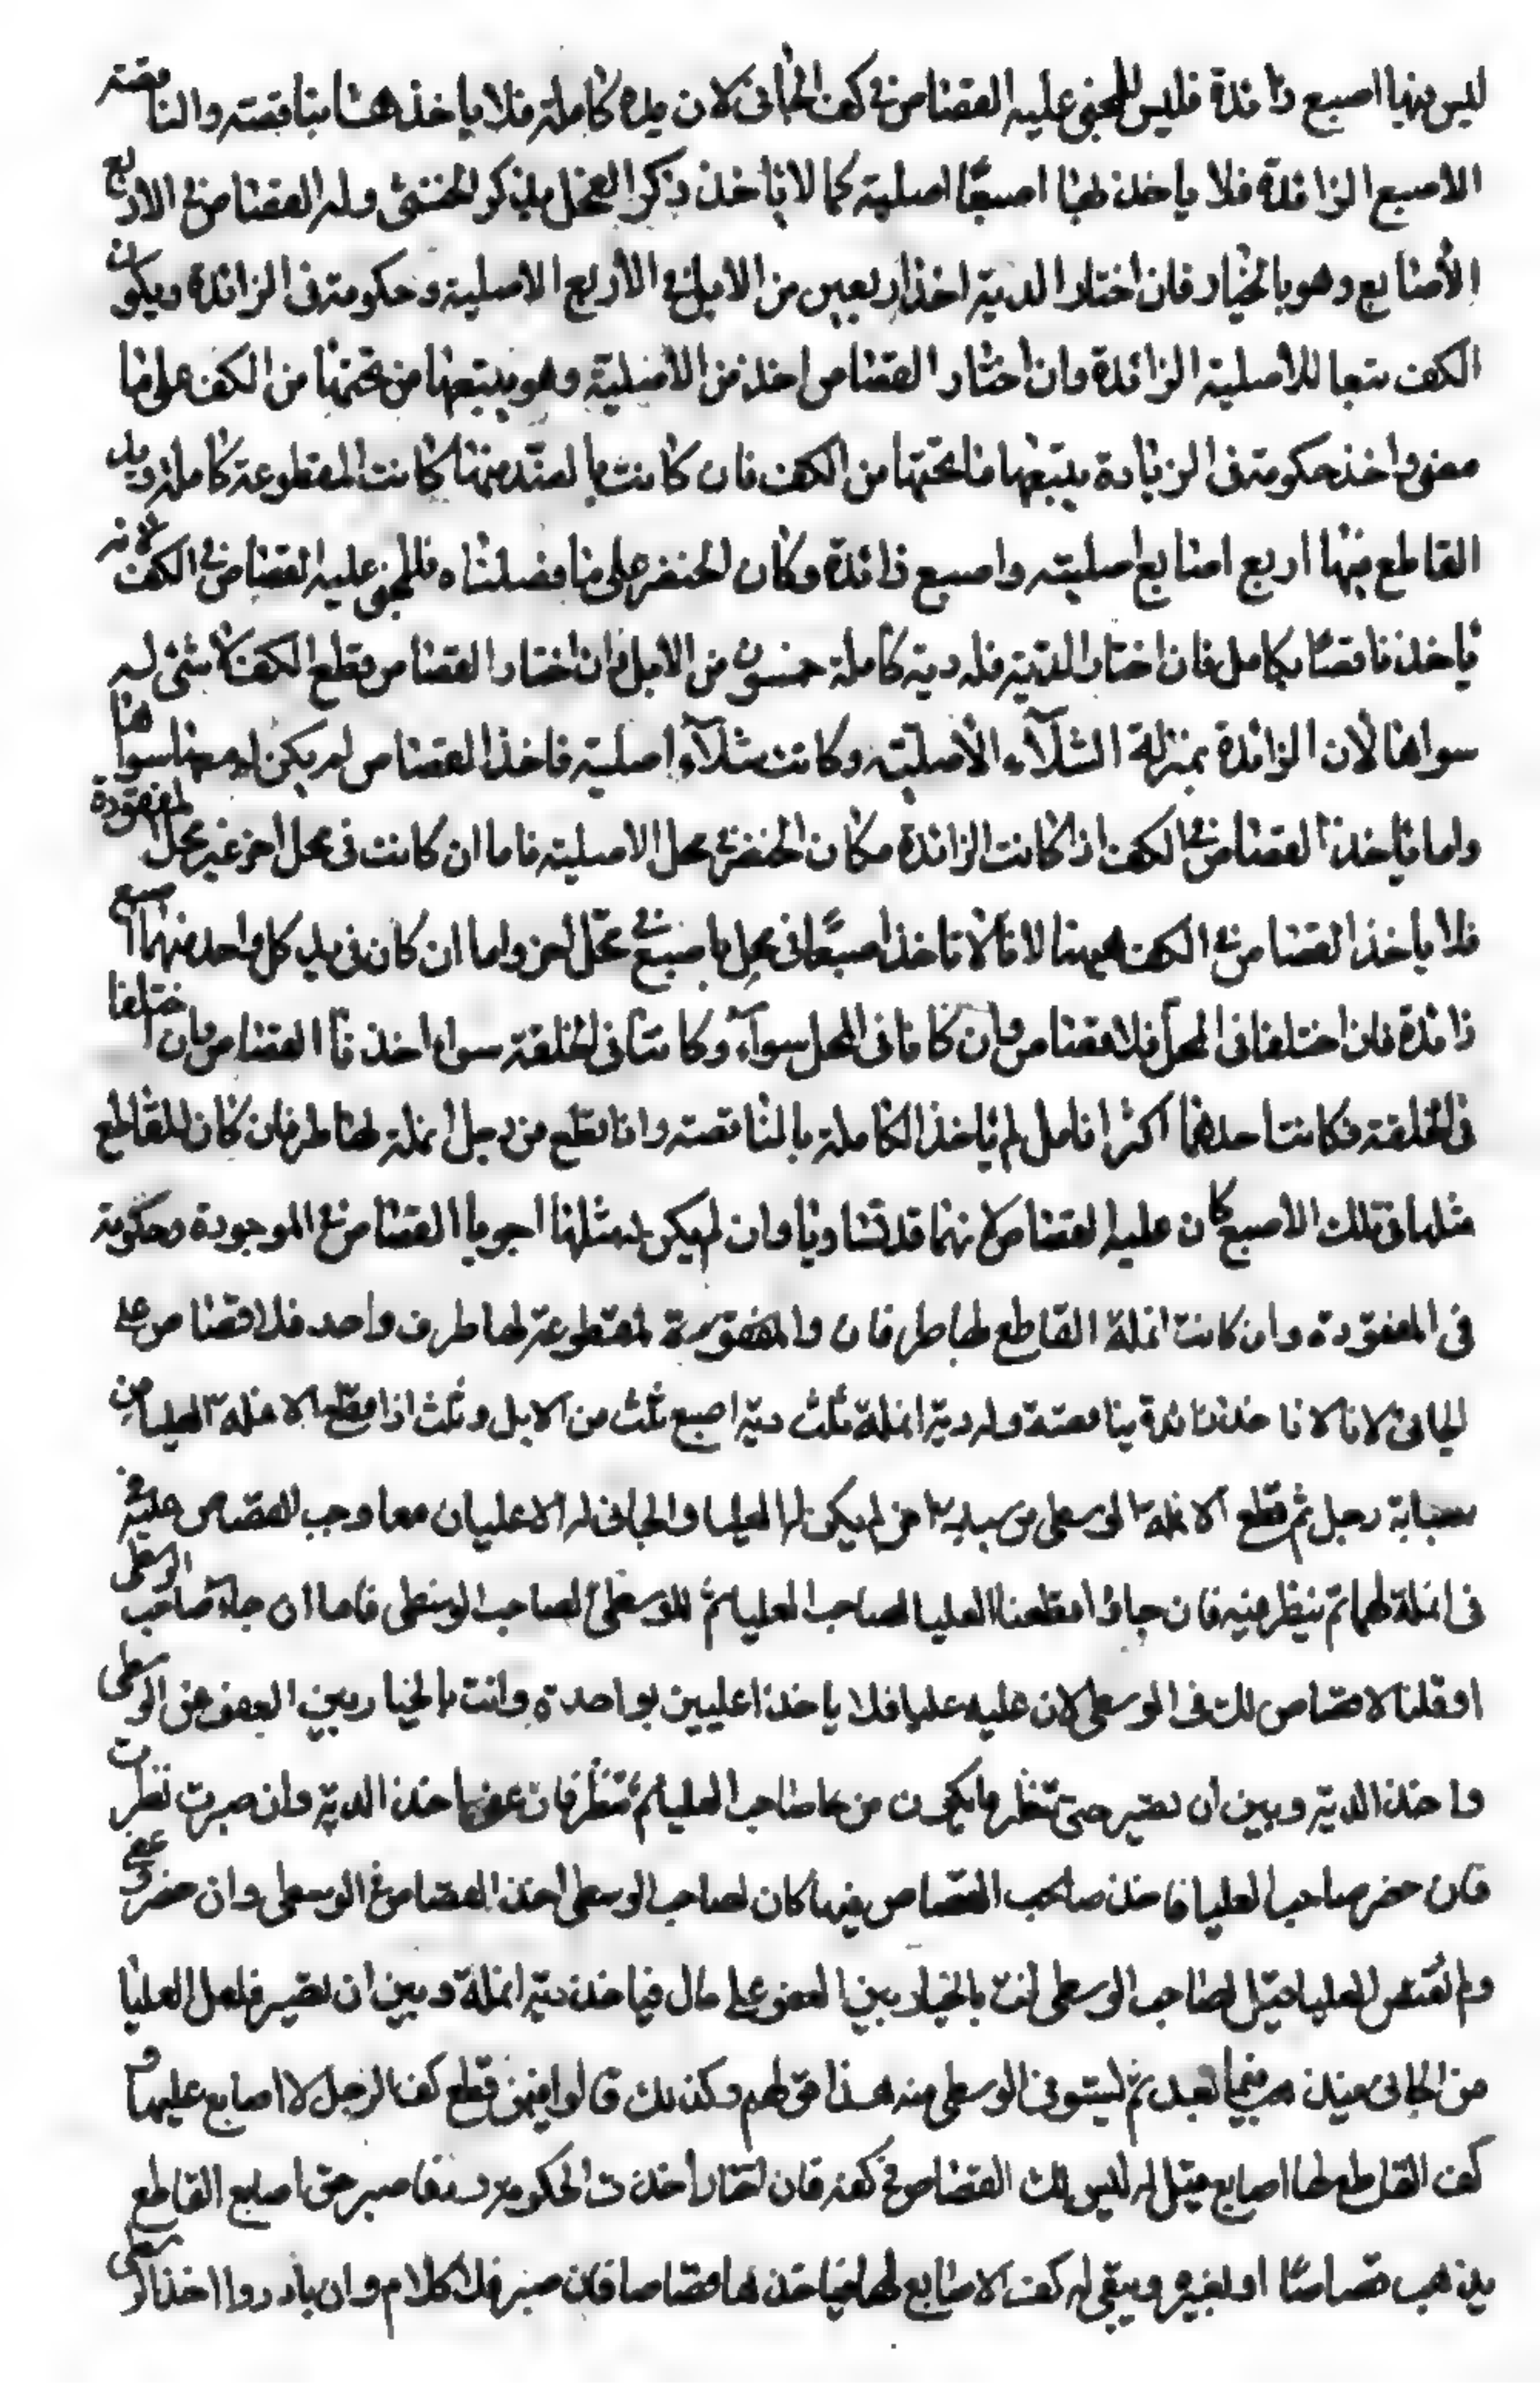 ليس فيها اصبع زائدة فليس للمجنى عليه القصاص فى كف الجانى لان يده كاملة فلا ياخذ هنا بناقصته والناقصته
الاصبع الزائدة فلا ياخذ بها اصبعًا اصلية كما لا ياخذ ذكر الفحل بذكر الخنثى وله القصاص فى الاربع
الأصابع وهو بالخيار فان اختار الدية اخذ اربعين من الابل فى الأربع الاصلية وحكومة فى الزائدة ويكون
الكف تبعا للأصلية الزائدة وان اختار القصاص اخذ من الأصلية وهو يتبعها من تحتها من الكف على ما
مضى واخذ حكومة فى الزيادة يتبعها ما تحتها من الكف فان كانت بالضد منها كانت المقطوعة كاملة ويد
القاطع فيها اربع اصابع اصلية واصبع زائدة وكان الخنصر على ما فصلناه فللمجنى عليه القصاص فى الكف لانه
ياخذ ناقصًا بكامل فان اختار الدية فله دية كاملة خمسون من الابل وان اختار القصاص قطع الكف لا شئ له
سواها لأن الزائدة بمنزلة الشلآء الأصلية وكانت شلآء اصلية فاخذ القصاص لم يكن له سواها
واما ياخذ القصاص فى الكف اذا كانت الزائدة مكان الخنصر فى محل الاصلية فاما ان كانت فى محل اخر غير محل المفقودة
فلا ياخذ القصاص فى الكف ههنا لانا لا ناخذ اصبعًا فى محل باصبع فى محل اخر واما ان كان فى يد كل واحد منهما اصبع
زائدة فان اختلفا فى المحل فلا قصاص وان كانا فى المحل سوآء وكانتا فى الخلقة سواء اخذنا القصاص وان اختلفا
فى الخلقة فكانت احدهما اكثر انامل لم ياخذ الكاملة بالناقصة واذا قطع من رجل انملة لها طرفان كان للقاطع
مثلها فى تلك الأصبع كان عليه القصاص لانهما قد تساويا وان لم يكن له مثلها اجريا القصاص فى الموجودة وحكومة
فى المفقودة وان كانت انملة القاطع لها طرفان والمقطوعة لها طرف واحد فلا قصاص على
الجانى لانا لا ناخذ زائدة بناقصة وله دية انملة ثلث دية اصبع ثلث من الابل وثلث اذا قطع الانملة العليا من
سبابة رجل ثم قطع الانملة الوسطى من سبابة اخر لم يكن له العليا والجانى له الاعليان معا وجب القصاص عليه
فى انملة لهما ثم ينظر فيه فان جاؤا قطعنا العليا لصاحب العليا ثمّ الوسطى لصاحب الوسطى فاما ان جاء صاحب الوسطى
اوقلنا لا قصاص لك فى الوسطى لان عليه عليا فلا ياخذ اعليين بواحدة وانت بالخيار بين العفو عن الوسطى
واخذ الدية وبين ان تصبر حتى تنظر ما يكون من صاحب العليا ثم تنظر فان عفى اخذ الدية وان صبرت نظرت
فان حضر صاحب العليا فاخذ صاحب القصاص فيها كان لصاحب الوسطى اخذ القصاص فى الوسطى وان حضر وعفى
ولم يقتص العليا قيل لصاحب الوسطى انت بالخيار بين العفو على مال فياخذ دية انملة وبين ان تصبر فلعل العليا
من الجانى بعد ثمّ ليستوفى الوسطى منه هذا قولهم وكذلك قالوا فيمن قطع كف الرجل لا اصابع عليها و
كف القاطع لها اصابع قيل له ليس لك القصاص فى كفه فان اختار اخذت الحكومة صبر حتى اصابع القاطع
يذهب قصاصًا او لغيره ويبقى له كف لا اصابع لها فياخذها قصاصا فان صبر فلا كلام وان بادروا اخذ